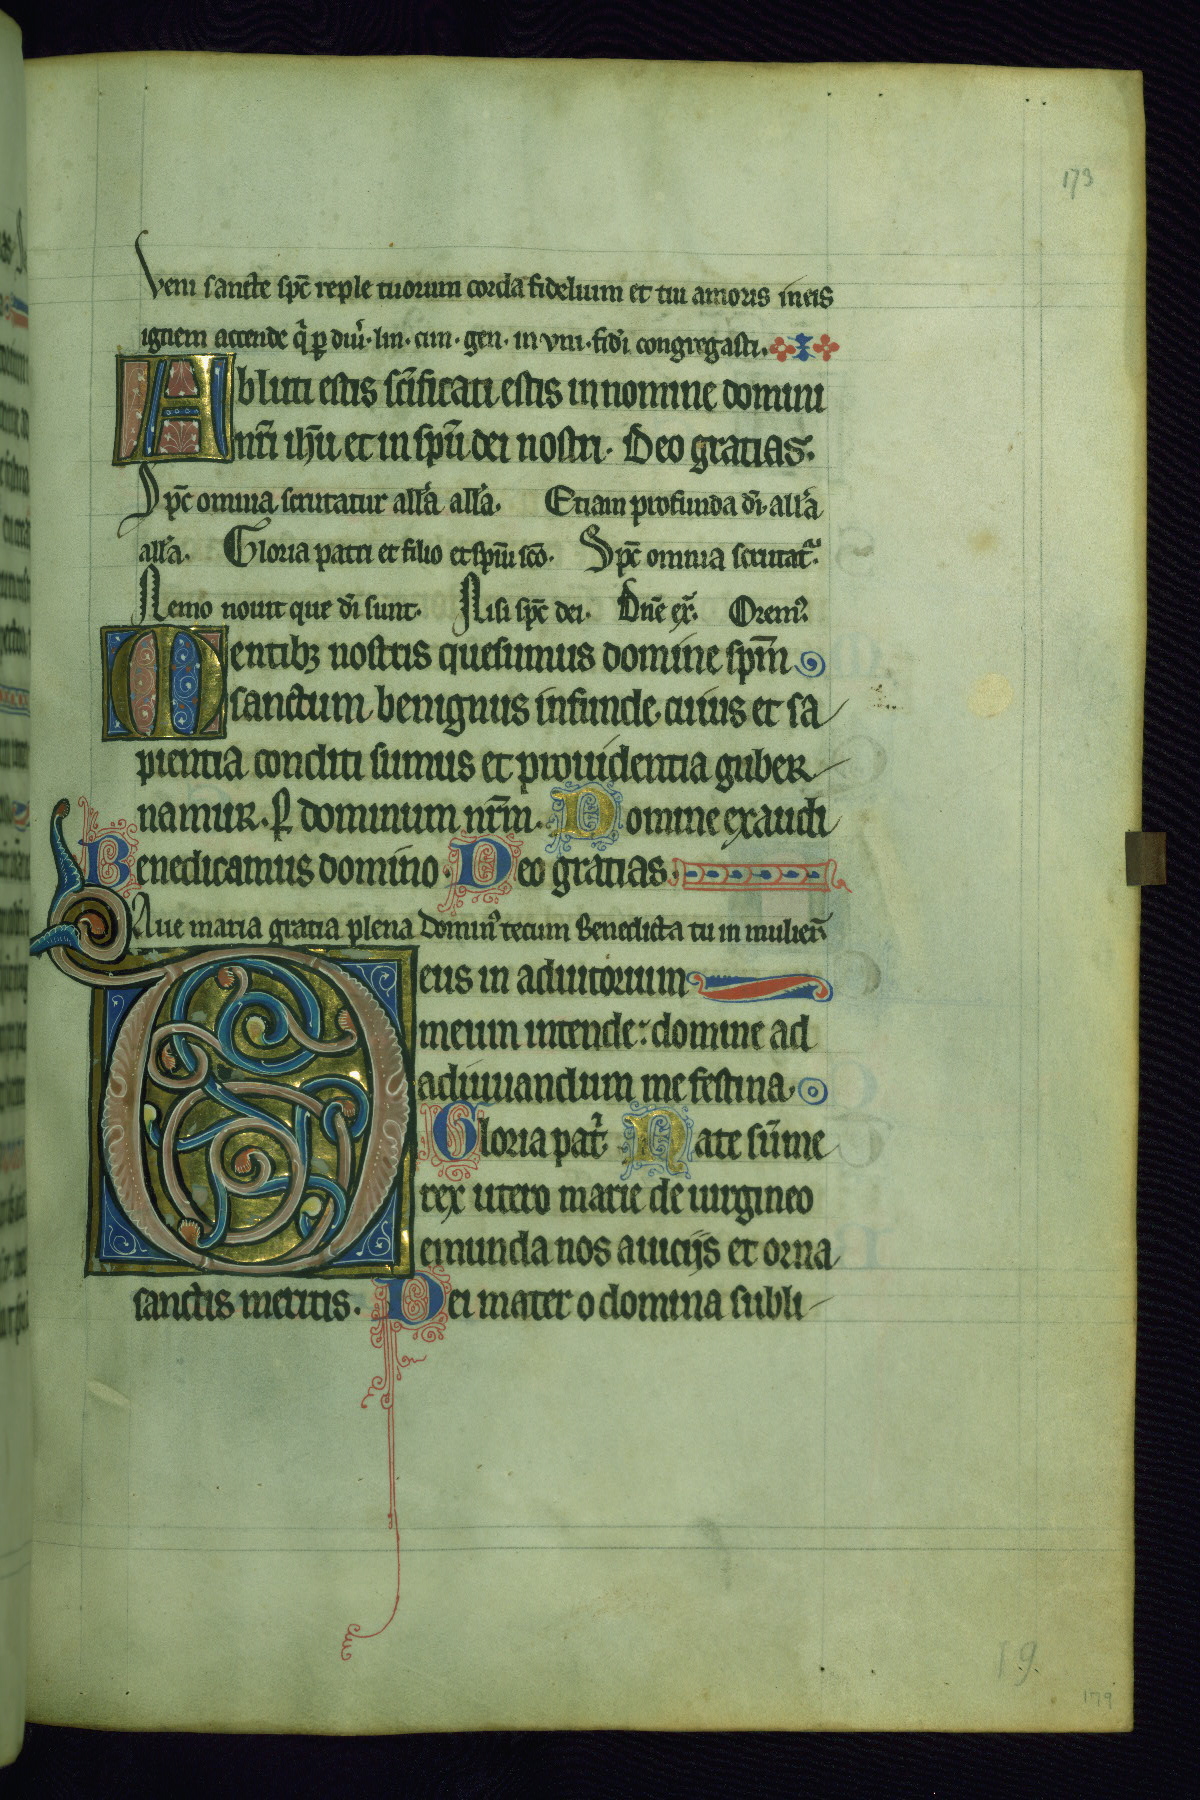 173
Veni sancte spc̄ reple tuorum corda fidelium et tui amoris in eis
ignem accende q̄ p̄ diu̇·lin·cun·gen·in vni·fidi̇ congregasti.
Abluti estis sc̄ificati estis in nomine domini
nr̄i ihū et in spū dei nostri. Deo gratias.
Spc̄ omnia scrutatur all'a all'a. Etiam profunda dī. all'a
all'a. Gloria patri et filio et spiū sc̄o. Spc̄ omnia scrutat᷑.
Nemo nouit que dī sunt. Nisi spc̄ dei. Dn̄e ex̄. Orem᷒
Mentibꝫ nostris quesumus domine spm̄
sanctum benignus infunde. cuius et sa
pientia conditi sumus et prouidentia guber
namur. P̲ dominum nr̄m. Domine exaudi
Benedicamus domino. Deo gratias.
Aue maria gratia plena Domin᷒ tecum Benedicta tu in mulier̄
Deus in adiutorium
meum intende: domine ad
adiuuandum me festina.
Gloria pat̓. Nate sūme
rex utero marie de uirgineo
emunda nos a uicijs et orna
sanctis meritis. Dei mater o domina subli
19
179